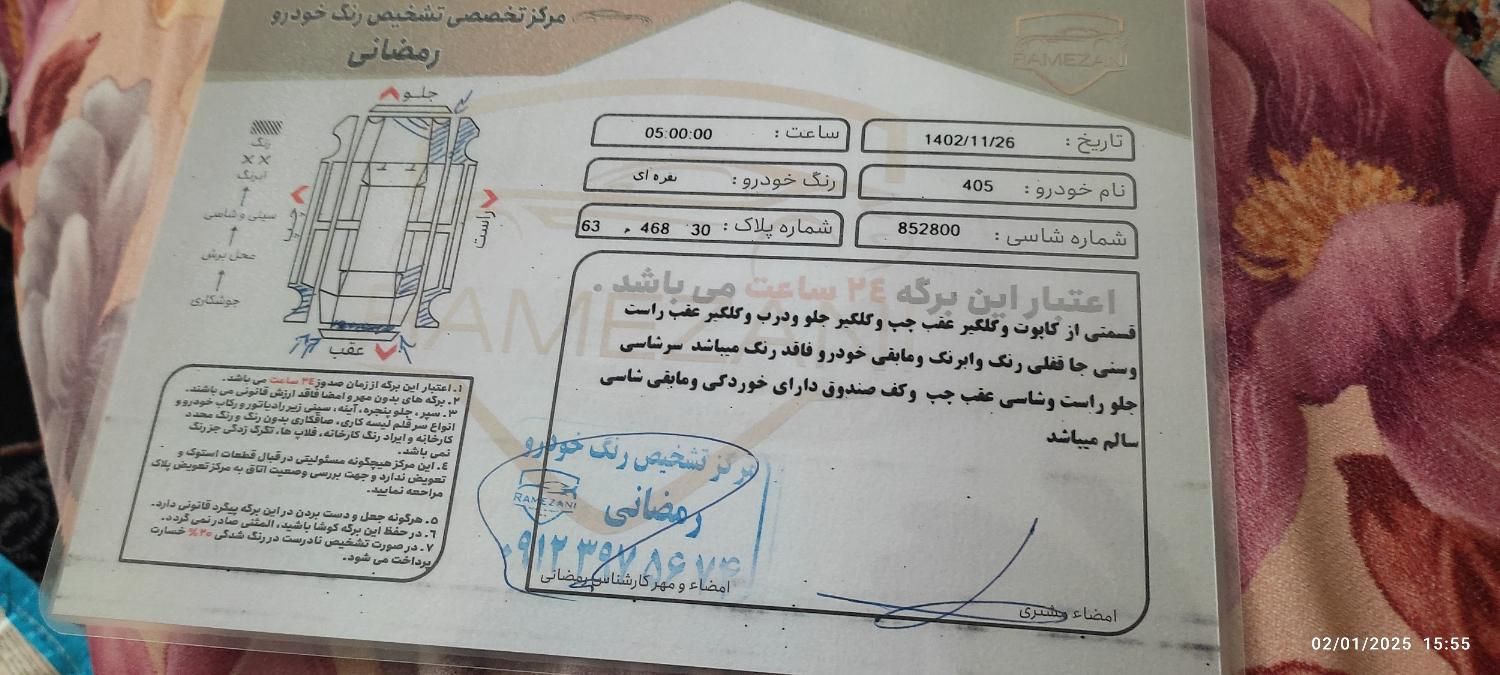 مرکز تخصصی تشخیص رنگ خودرو
رمضانی
RAMEZANI
تاریخ : 1402/11/26
ساعت : 05:00:00
نام خودرو : 405
رنگ خودرو : نقره ای
شماره شاسی : 852800
شماره پلاک : 30 468 63
جلو
عقب
راست
چپ
رنگ
×× آبرنگ
سینی و شاسی
محل برش
جوشکاری
اعتبار این برگه ۲۴ ساعت می باشد .
قسمتی از کاپوت وگلگیر عقب چپ وگلگیر جلو ودرب وگلگیر عقب راست
وسنی جا قفلی رنگ وابرنگ ومابقی خودرو فاقد رنگ میباشد سرشاسی
جلو راست وشاسی عقب چپ وکف صندوق دارای خوردگی ومابقی شاسی
سالم میباشد
RAMEZANI
۱. اعتبار این برگه از زمان صدور ۲۴ ساعت می باشد.
۲. برگه های بدون مهر و امضا فاقد ارزش قانونی می باشند.
۳. سپر، جلو پنجره، آینه، سینی زیر رادیاتور و رکاب خودرو و
انواع سرقلم لیسه کاری، صافکاری بدون رنگ و رنگ مجدد
کارخانه و ایراد رنگ کارخانه، قلاب ها، تگرگ زدگی جز رنگ
نمی باشد.
٤. این مرکز هیچگونه مسئولیتی در قبال قطعات استوک و
تعویض ندارد و جهت بررسی وضعیت اتاق به مرکز تعویض پلاک
مراجعه نمایید.
۵. هرگونه جعل و دست بردن در این برگه پیگرد قانونی دارد.
٦. در حفظ این برگه کوشا باشید، المثنی صادر نمی گردد.
۷. در صورت تشخیص نادرست در رنگ شدگی ۲۰% خسارت
پرداخت می شود.
مرکز تشخیص رنگ خودرو
رمضانی
RAMEZANI
۰۹۱۲ ۳۹۷ ۸۶ ۷۴
امضاء و مهر کارشناس رمضانی
امضاء مشتری
02/01/2025 15:55